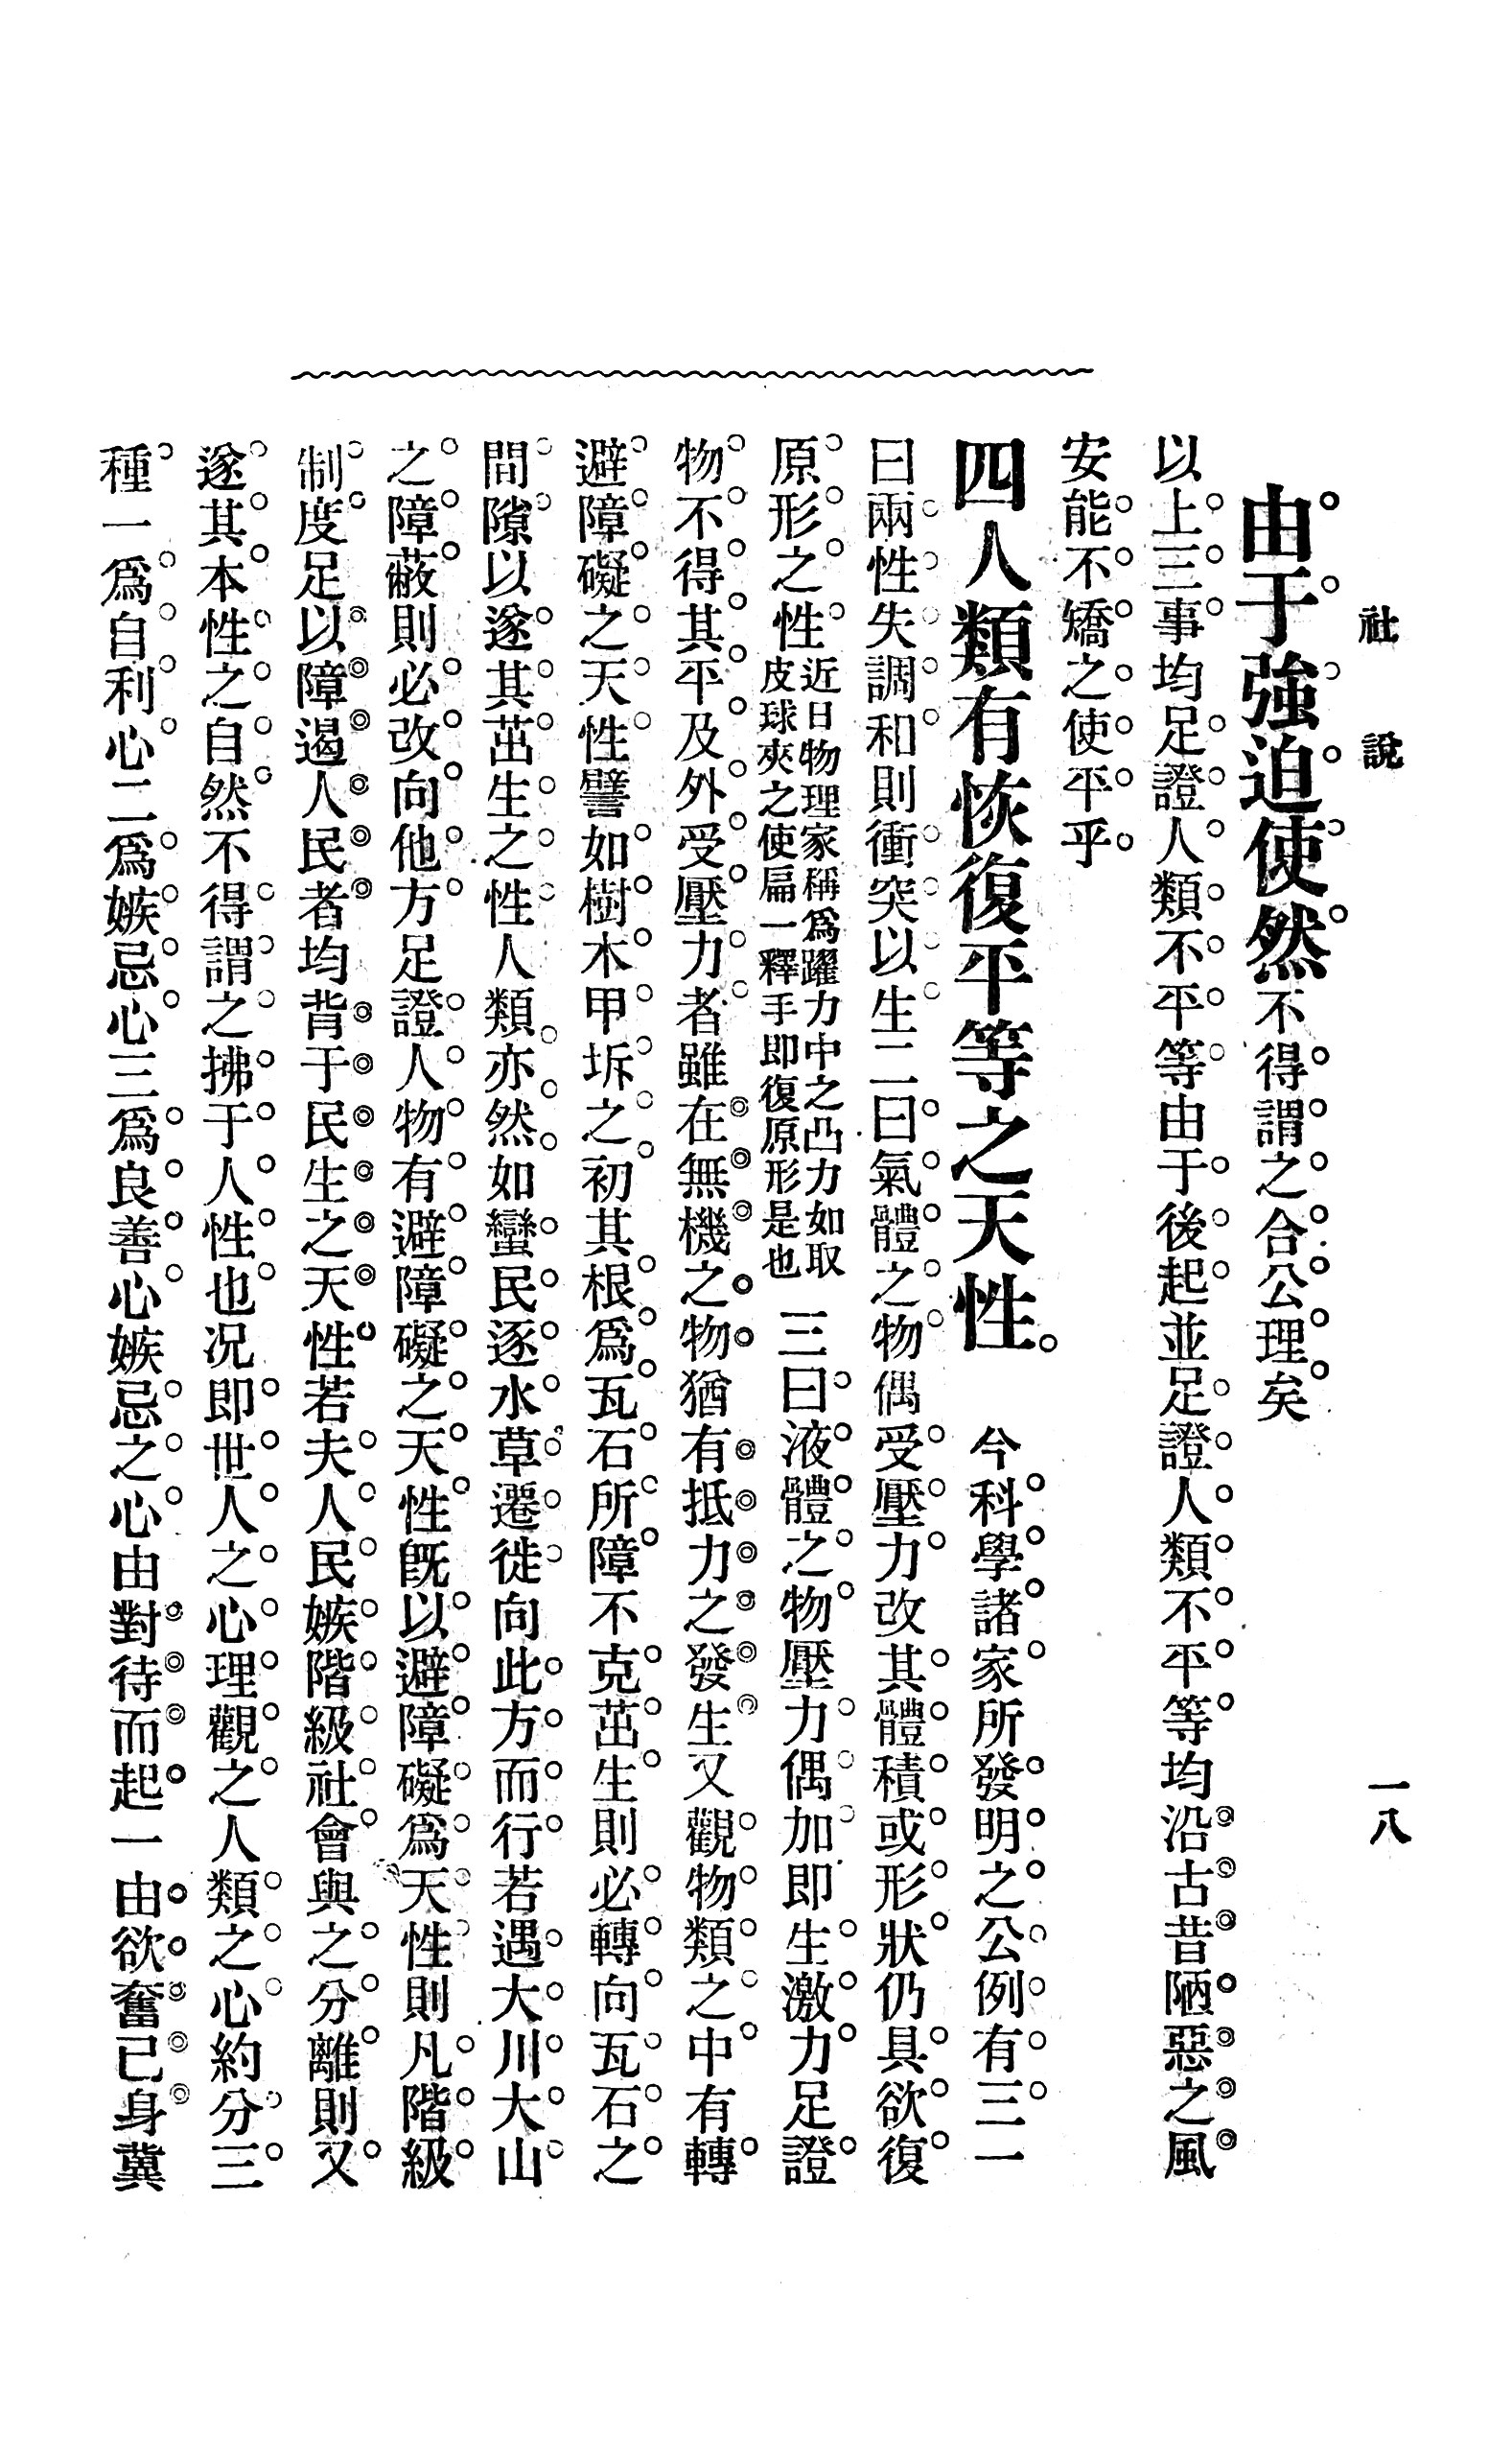 社說
一八
由于強迫使然不得謂之合公理矣
以上三事均足證人類不平等由于後起並足證人類不平等均沿古昔陋惡之風
安能不矯之使平乎
四人類有恢復平等之天性。 今科學諸家所發明之公例有三一
曰兩性失調和則衝突以生二曰氣體之物偶受壓力改其體積或形狀仍具欲復
原形之性近日物理家稱爲躍力中之凸力如取皮球夾之使扁一釋手即復原形是也 三曰液體之物壓力偶加即生激力足證
物不得其平及外受壓力者雖在無機之物猶有抵力之發生又觀物類之中有轉
避障礙之天性譬如樹木甲坼之初其根爲瓦石所障不克茁生則必轉向瓦石之
間隙以遂其茁生之性人類亦然如蠻民逐水草遷徙向此方而行若遇大川大山
之障蔽則必改向他方足證人物有避障礙之天性旣以避障礙爲天性則凡階級
制度足以障遏人民者均背于民生之天性若夫人民嫉階級社會與之分離則又
遂其本性之自然不得謂之拂于人性也况即世人之心理觀之人類之心約分三
種一爲自利心二爲嫉忌心三爲良善心嫉忌之心由對待而起一由欲奮己身冀